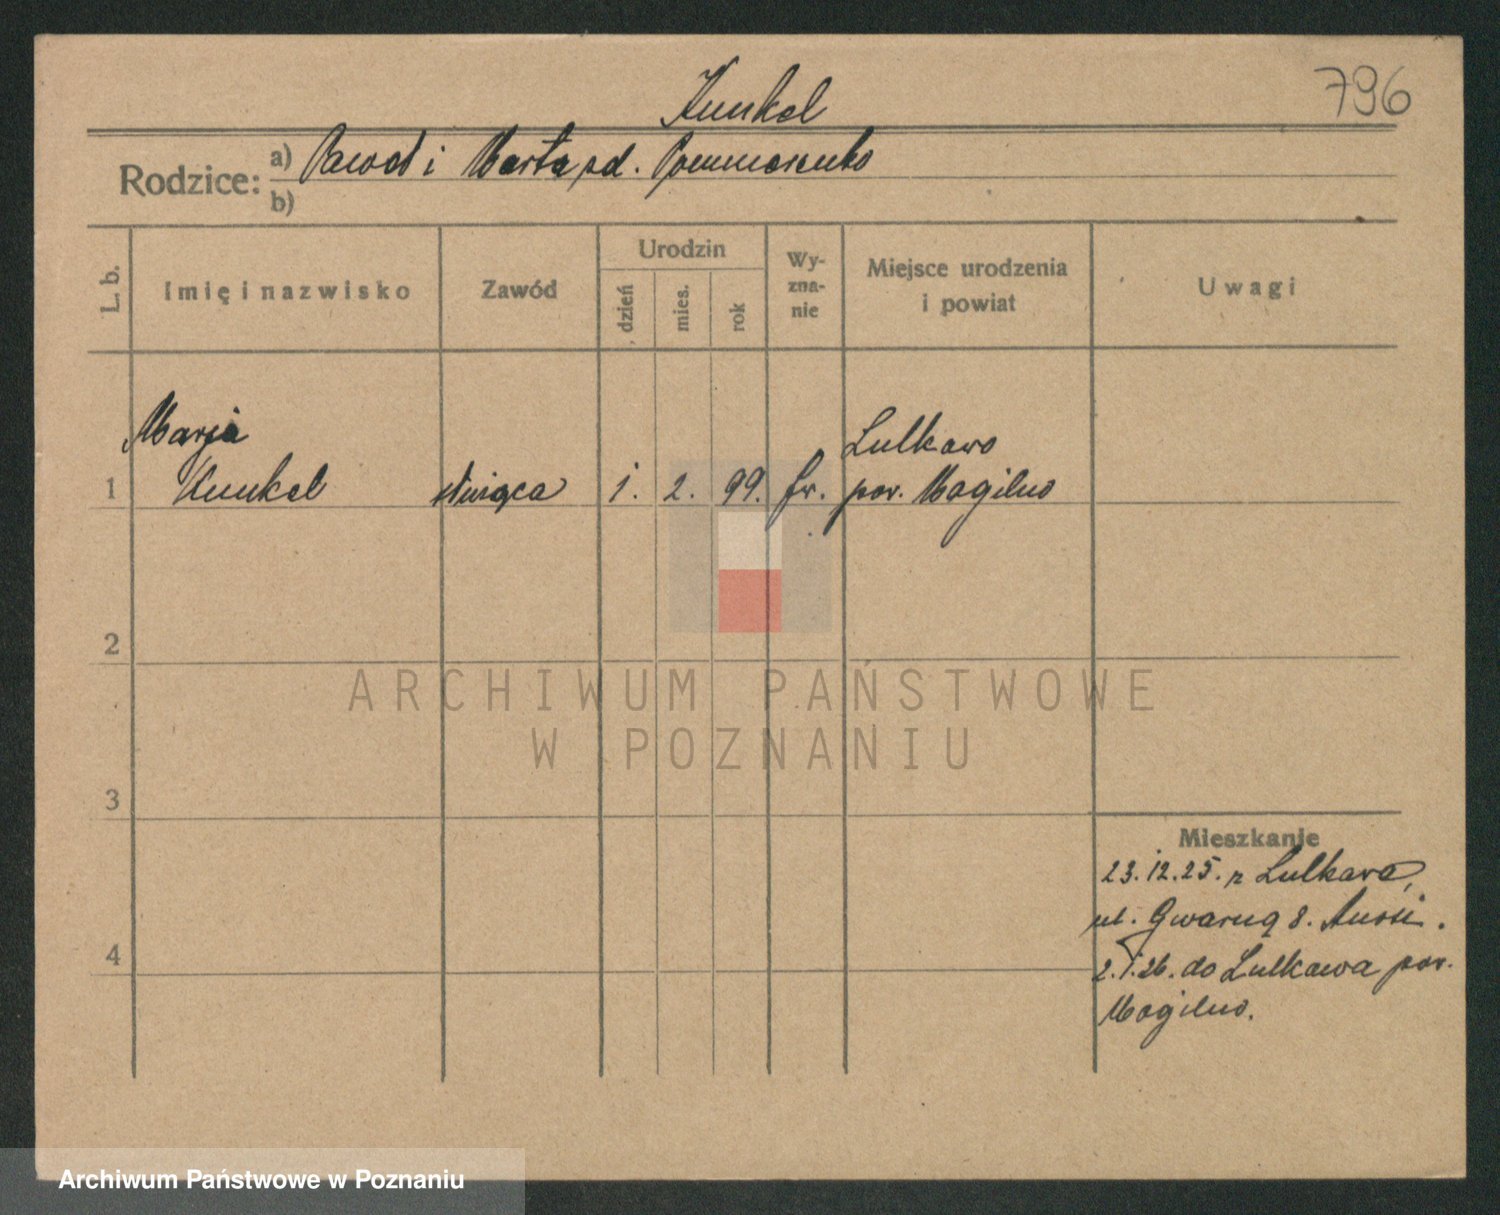 796
Kunkel
Rodzice: a) Paweł i Marta zd. Pommerenke
b)
L. b. Imię i nazwisko Zawód Urodzin dzień mies. rok Wyzna-nie Miejsce urodzenia i powiat Uwagi
Marja Lulkowo
1 Kunkel służąca 1. 2. 99. pow. Mogilno
2
3
4
Mieszkanie
23.12.25. z Lulkowa,
ul. Gwarna 8.
2.1.26. do Lulkowa pow.
Mogilno.
ARCHIWUM PAŃSTWOWE
W POZNANIU
Archiwum Państwowe w Poznaniu